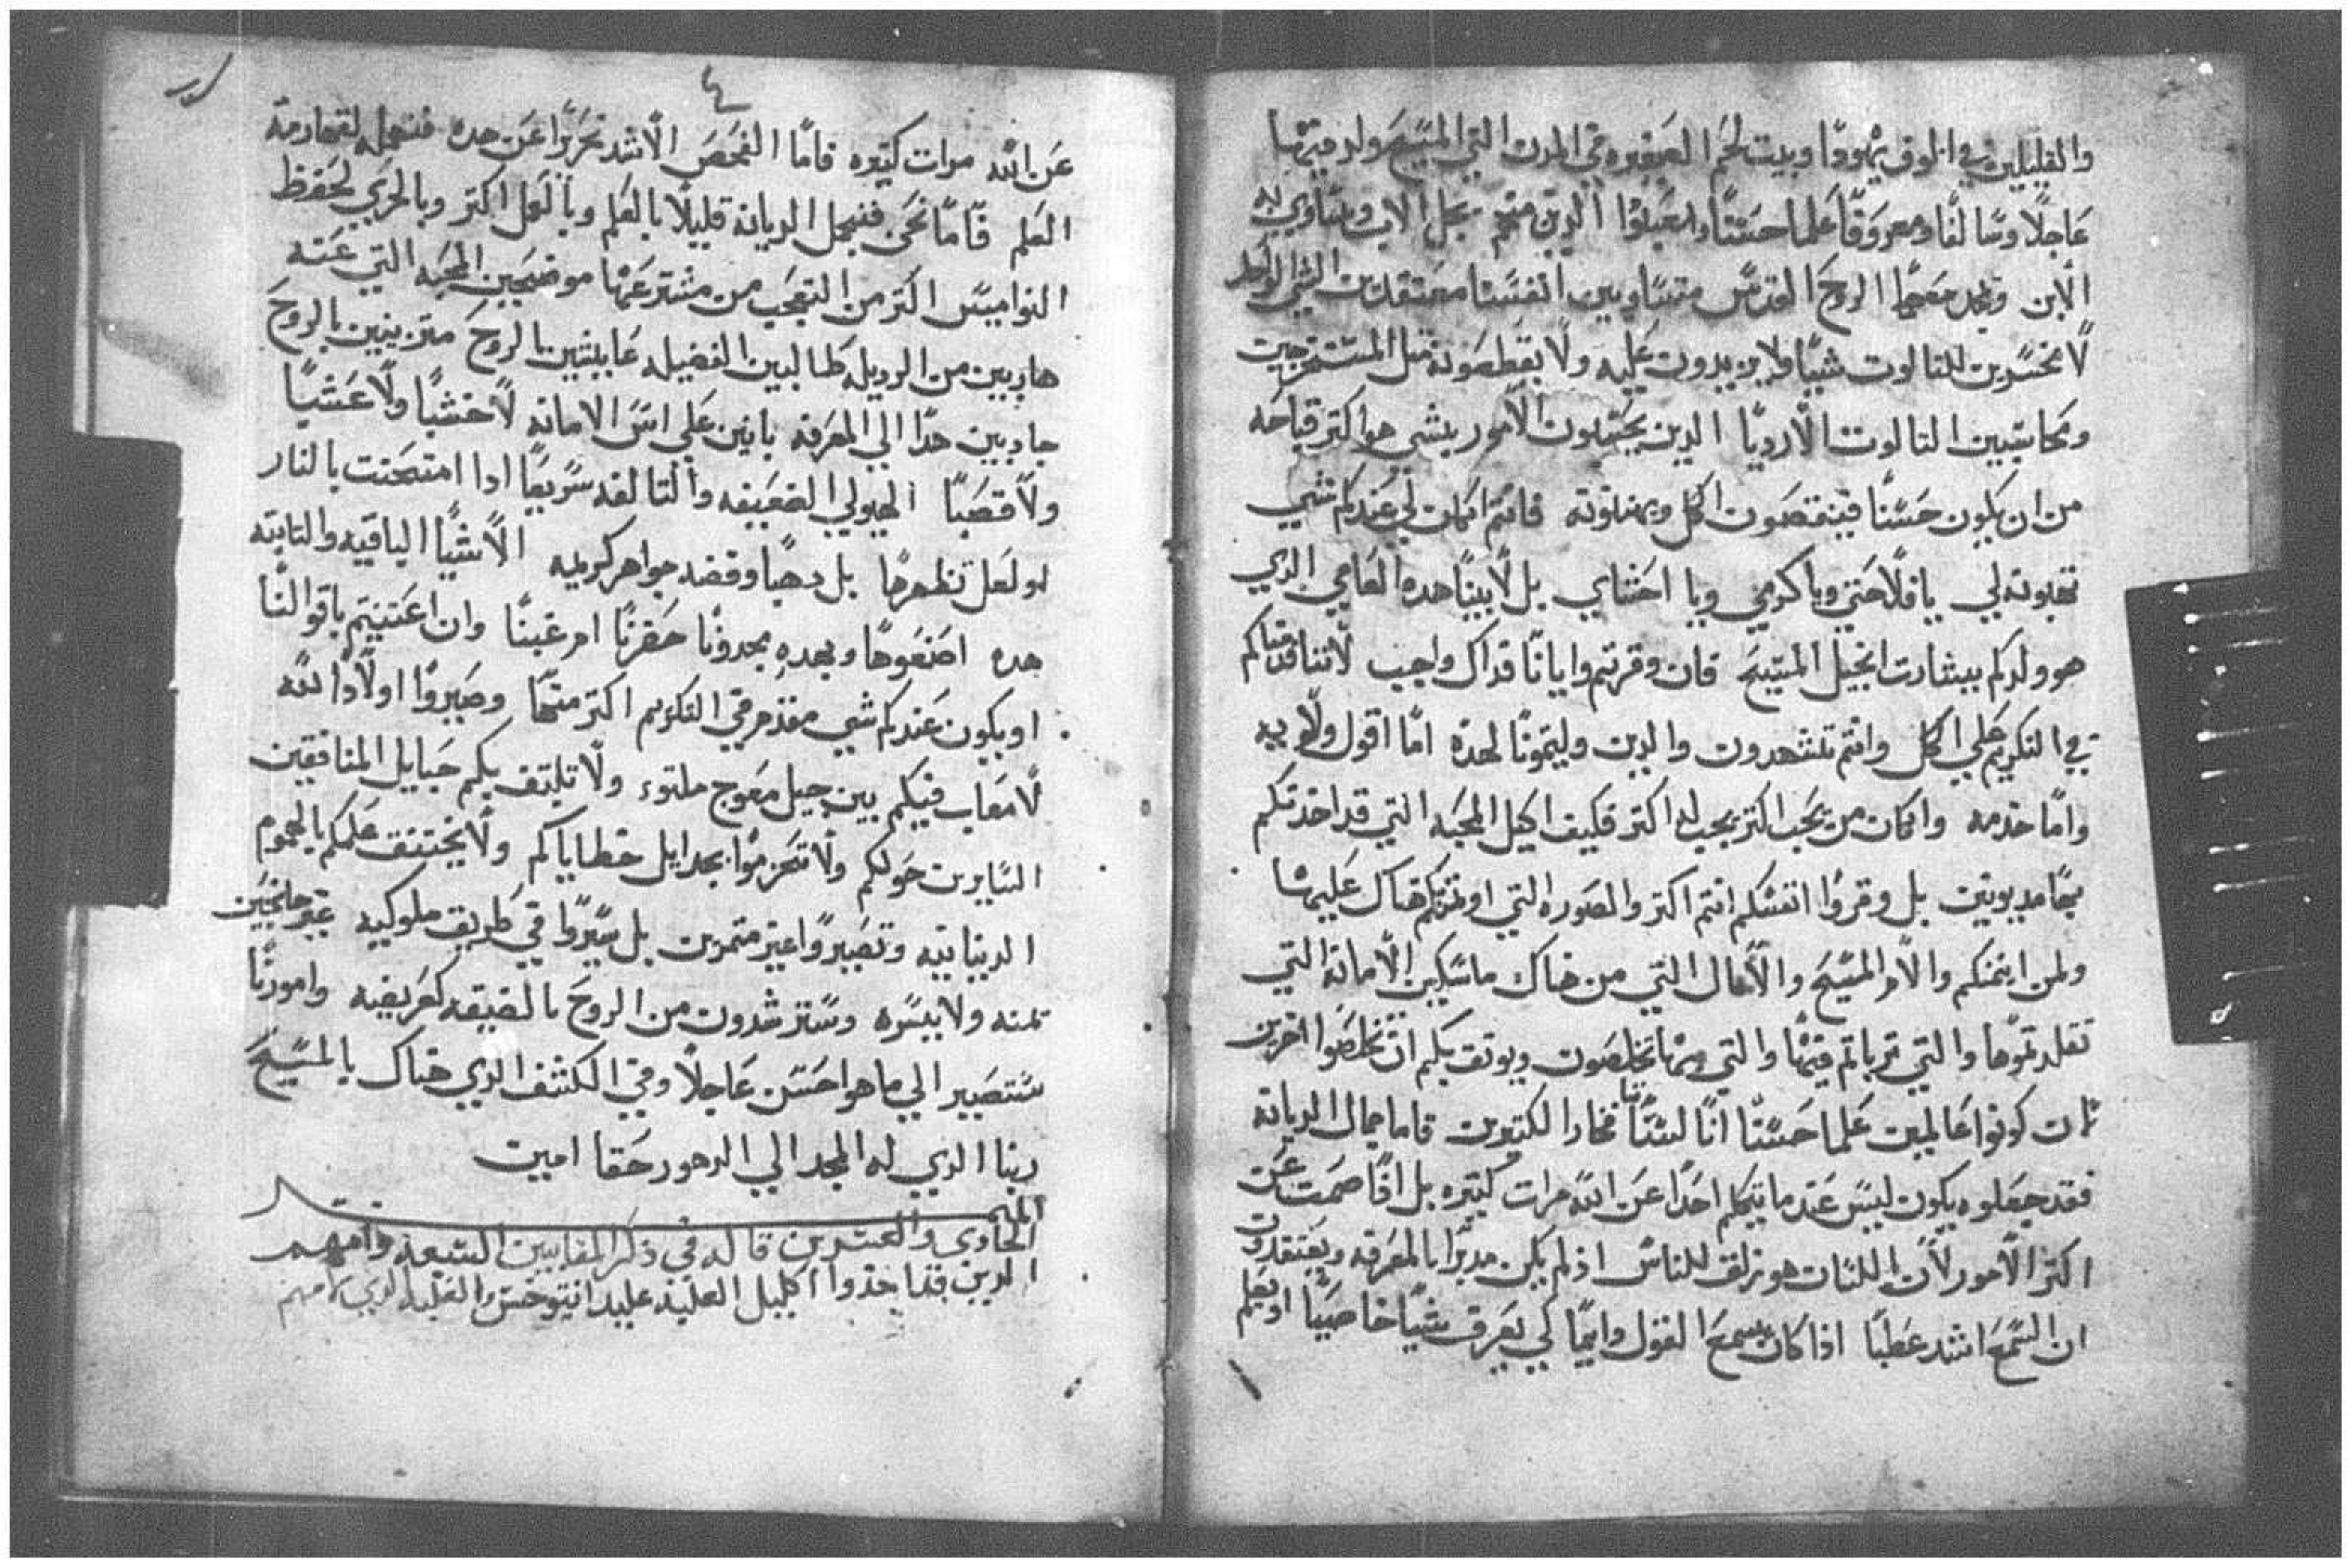 والقليلين في الوف يهودا وبيت لحم الصغيره في المدن التي المسيح ولد فيها
عاجلا وسالفا ومعروفا علما حسنا واعبدوا الدين منهم بجل الاب ويساوي به
الابن وبمجد معهما الروح القدس متساويين انفسنا معتقدين الشي الواحد
لا مخسرين للتالوت شيا ولا يزيدون عليه ولا يقطعونه مثل المستخرجين
ومحاسبين التالوت الارديا الدين يحتملون الامور بشي هو اكتر قباحه
من ان يكون حسنا فينقصون الكل ويهينونه فانتم ان كان لي عندكم شي
تهبونه لي يا فلاحتي ويا كرمي ويا احشاي بل لابينا هده العامي الدي
هو ولدكم ببشارت انجيل المسيح فان وقرتم وايانا فداك واجب لاننا قدمناكم
في التكريم علي الكل وانتم تشهدون والدين وليتمونا لهده اما اقول ولايه
واما خدمه وان كان من يحب اكتر يجب له اكتر فكيف اكيل المحبه التي قد اخدتكم
بها مديونين بل وقروا انفسكم انتم اكتر والصوره التي اوتمنتكم هناك عليها
ولمن ايتمنكم والام المسيح والامال التي من هناك ماسكين الامانه التي
تقلدتموها والتي تربايتم فيها والتي بها تخلصون ويوتق بكم ان تخلصوا اخرين
تان كونوا عالمين علما حسنا انا لسنا نخادا لكتيرين فاما جمال الديانه
فقد جعلوه يكون ليس عندما يتكلم احدا عن الله مرات كتيره بل اذا صمت عن
اكتر الامور لان اللسان هو زلق للناس اذ لم يكن مدبرا بالمعرفه ويعتقدون
ان السمع اشد عطبا اذا كان يسمع القول وايما لي يعرف شيا خاصيا او يعلم
عن الله مرات كتيره فاما الفحص الاشد تحريرا عن هده فنجعله لقهارمة
العلم فاما نحن فنبجل الديانه قليلا بالعلم وبالعمل اكتر وبالحري لحفظ
النواميس اكتر من التعجب من مشترعها موضحين المحبه التي عنه
هاربين من الرديله طالبين الفضيله عايشين بالروح متزينين بالروح
جادبين هدا الي المعرفه بانين علي اس الامانه لا خشبا ولا عشبا
ولا قصبا الهيولي الضعيفه والتالفه سريعا ادا امتحنت بالنار
او لعل تطهرها بل دهبا وفضه جواهر كريمه الاشيا الباقيه والتابته
هده اصنعوها وبهده مجدونا حضرنا ام غبنا وان اعتنيتم باقوالنا
او يكون عندكم شي مقدم في التكريم اكتر منها وصيروا اولادا لله
لا معاب فيكم بين جيل معوج ملتوء ولا تلتف بكم حبايل المنافقين
السايرين حولكم ولا تحزموا بجدايل خطاياكم ولا يختنق علمكم بالهموم
الدنياتيه وتصيروا غير متمرين بل سيروا في طريق ملوكيه غير جانحين
يمنه ولا يسره وسترشدون من الروح بالضيقه كعريضه وامورنا
ستصير الي ما هو احسن عاجلا وفي الكشف الدي هناك بالمسيح
ربنا الدي له المجد الي الدهور حقا امين
الميمر
الحادي والعشرين قاله في ذكر المقابيين السبعه وامهم
الدين قد اخذوا اكليل الغلبه عليه انتيوخس الدي